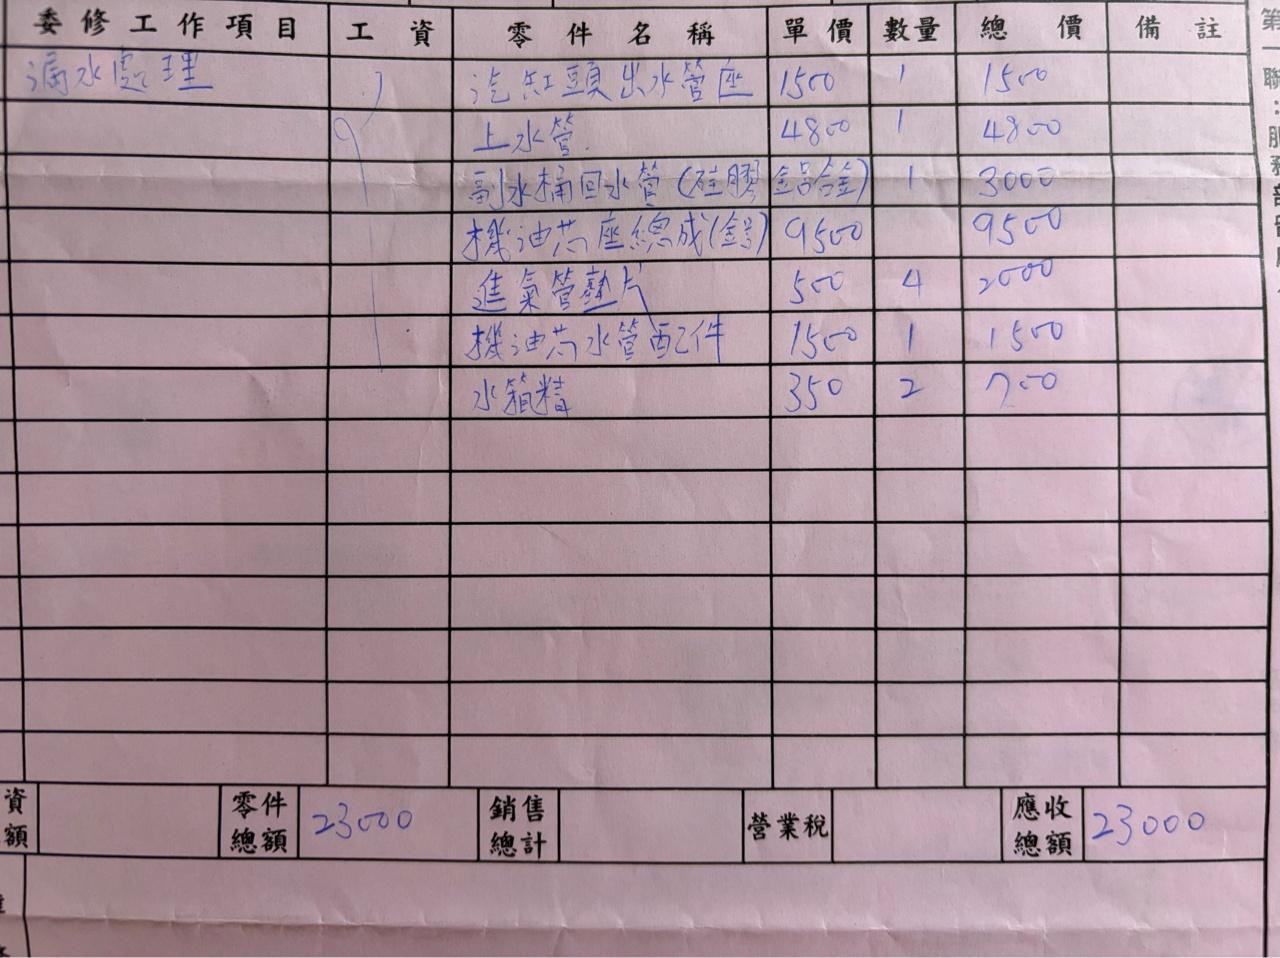 委修工作項目 工資 零件名稱 單價 數量 總價 備註
漏水處理 汽缸頭出水管座 1500 1 1500
上水管 4800 1 4800
副水桶回水管(硅膠鋁合金) 1 3000
機油芯座總成(鋁) 9500 9500
進氣管墊片 500 4 2000
機油芯水管配件 1500 1 1500
水箱精 350 2 700
資額 零件總額 23000 銷售總計 營業稅 應收總額 23000
第一聯:服務部